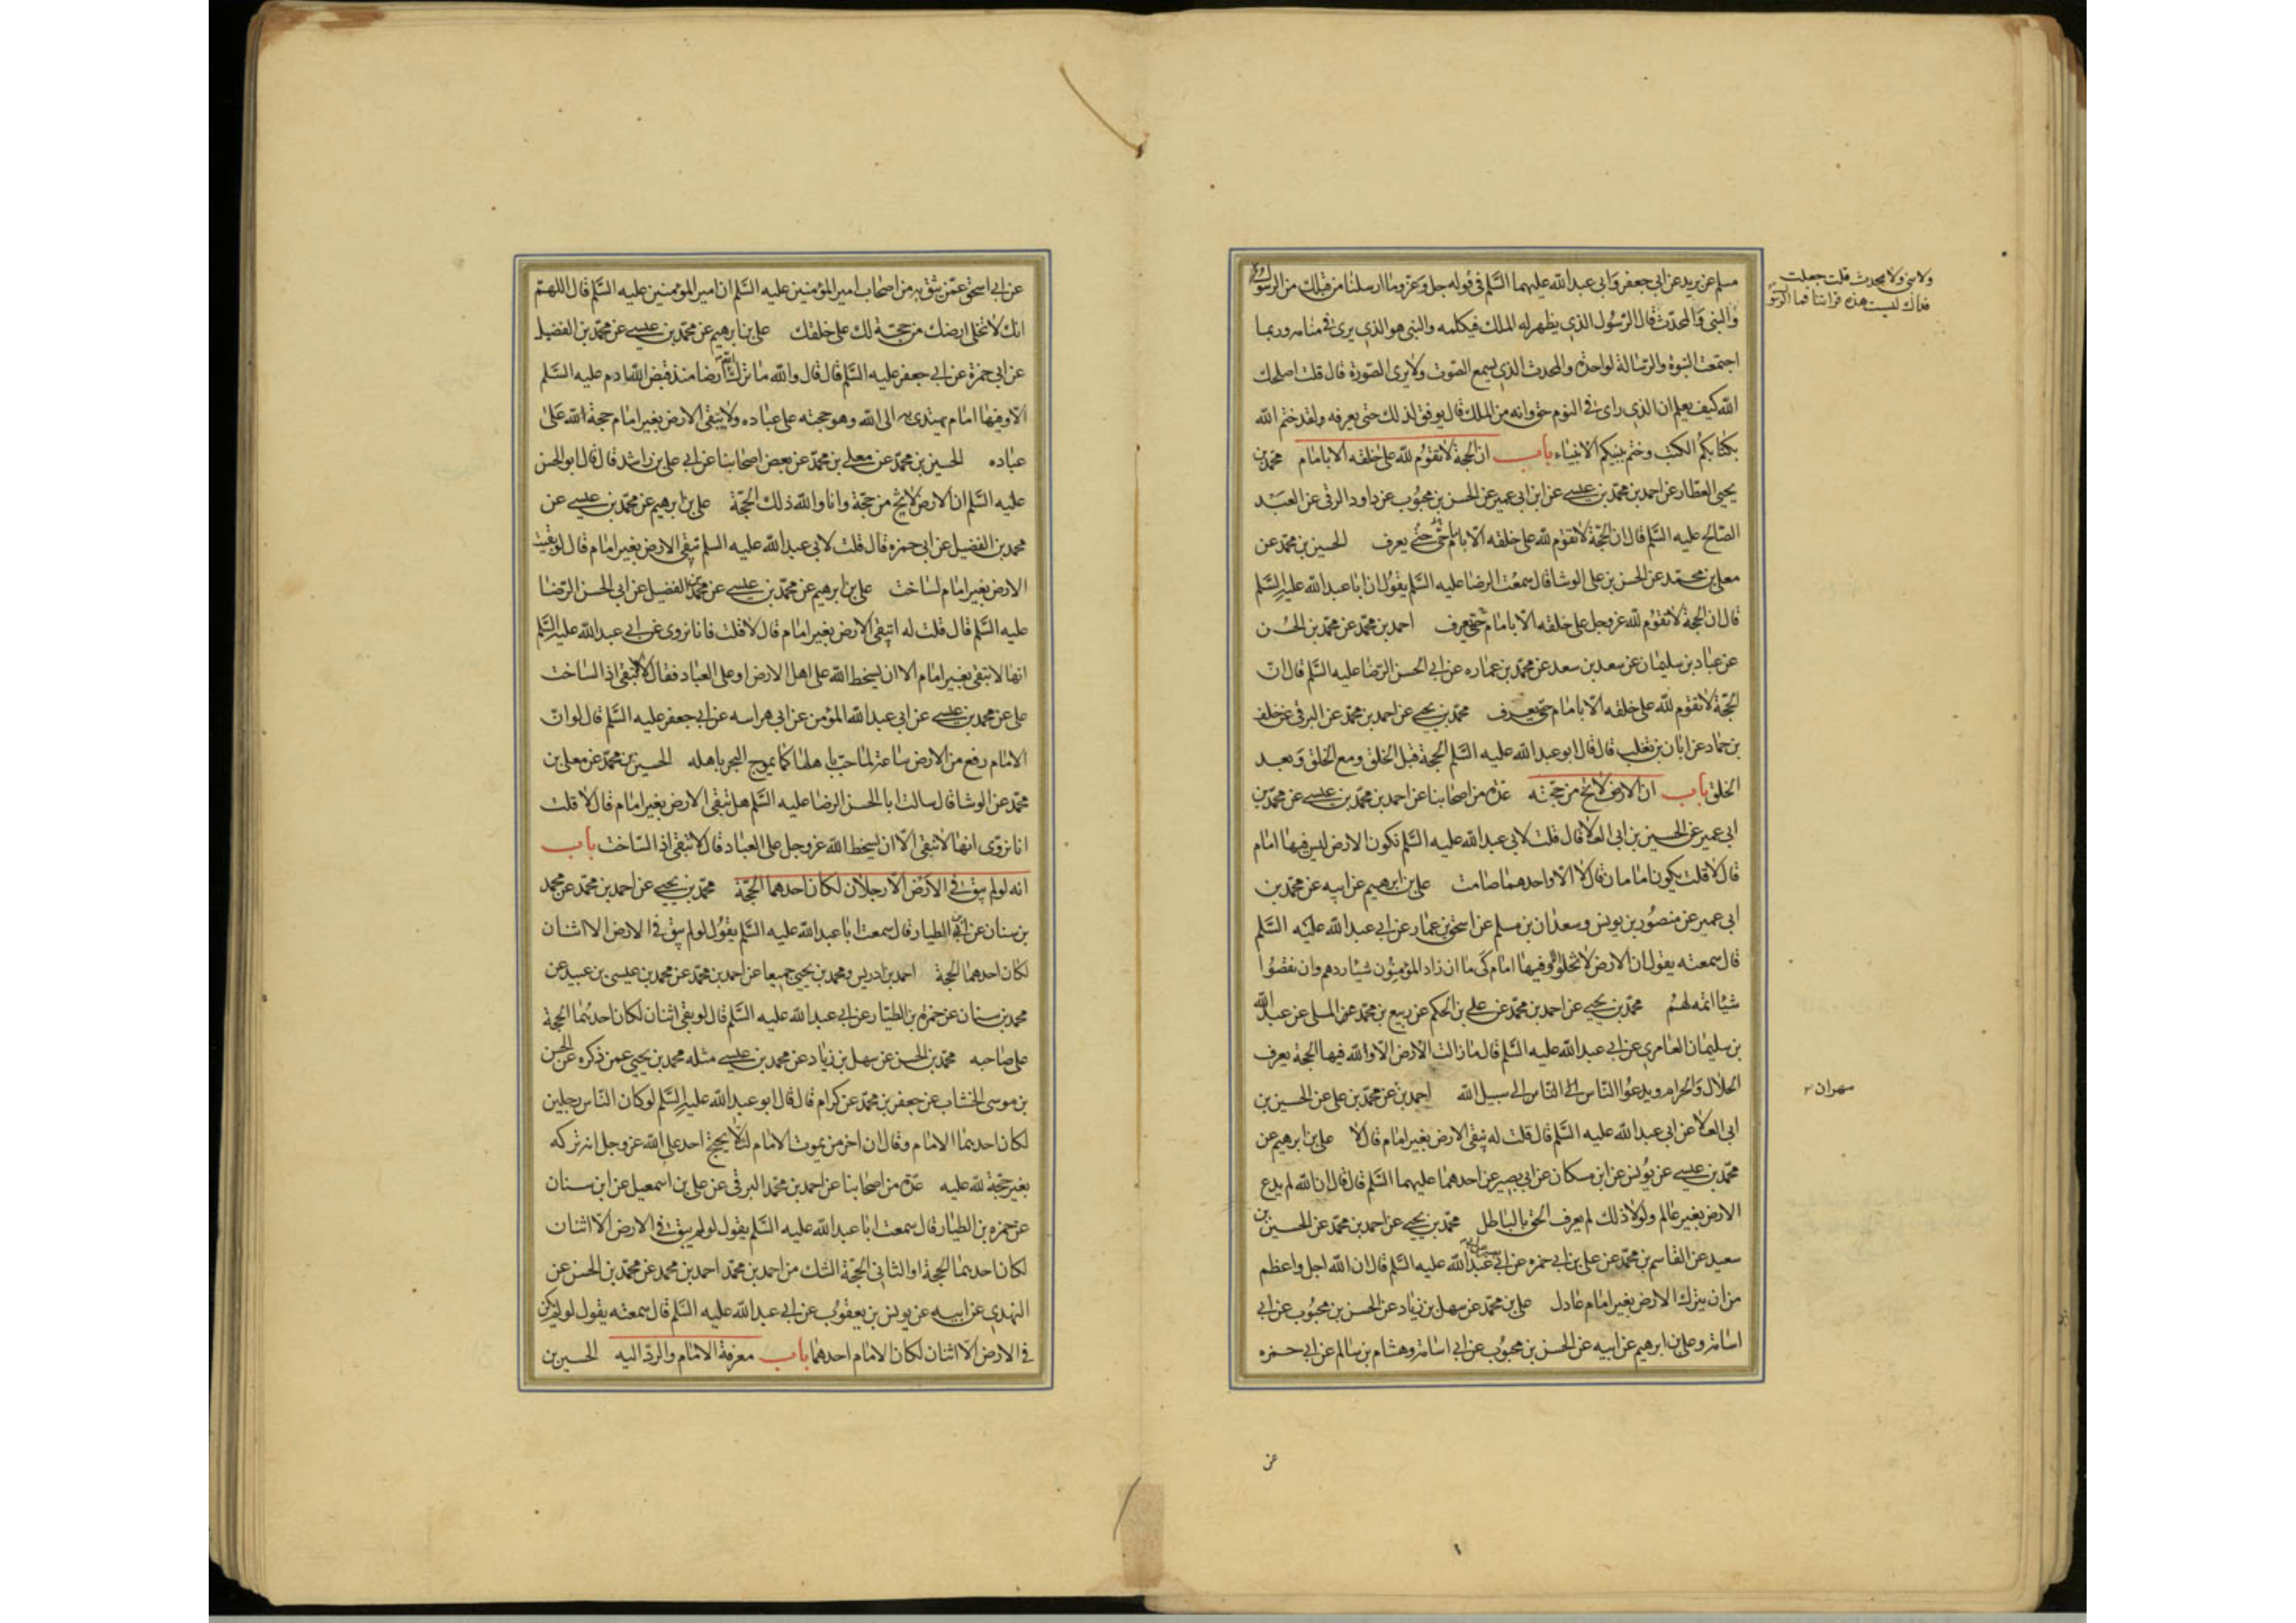 مسلم عن بريد عن ابي جعفر وابي عبد الله عليهما السّلم في قوله جل وعز وما ارسلنا من قبلك من الرسول
ولا نبي ولا محدث قلت جعلت
فداك ليست هذه قراتنا فما الرسول
والنبي والمحدّث قال الرّسول الذي يظهر له الملك فيكلمه والنبي هو الذي يرى في منامه وربما
اجتمعت النبوة والرّسالة لواحد والمحدث الذي يسمع الصّوت ولا يرى الصّورة قال قلت اصلحك
الله كيف يعلم ان الذي راى في النوم حق وانه من الملك قال يوفق لذلك حتى يعرفه ولقد ختم الله
بكتابكم الكتب وختم بنبيكم الانبياء باب ان الحجة لا تقوم لله على خلقه الا بامام محمد بن
يحيى العطار عن احمد بن محمّد بن عيسى عن ابن ابي عمير عن الحسن بن محبوب عن داود الرقى عن العبد
الصّالح عليه السّلم قال ان الحجّة لا تقوم لله على خلقه الّا بامام حتى يعرف الحسين بن محمّد عن
معلى بن محمّد عن الحسن بن على الوشا قال سمعت الرضا عليه السّلم يقول ان ابا عبد الله عليه السّلم
قال ان الحجة لا تقوم لله عز وجل على خلقه الّا بامام حتى يعرف احمد بن محمّد عن محمّد بن الحسن
عن عباد بن سليمان عن سعد بن سعد عن محمّد بن عماره عن ابي الحسن الرّضا عليه السّلم قال انّ
الحجّة لا تقوم لله على خلقه الّا بامام حتى يعرف محمّد بن يحيى عن احمد بن محمّد عن البرقى عن خلف
بن حماد عن ابان بن تغلب قال قال ابو عبد الله عليه السّلم الحجة قبل الخلق ومع الخلق وبعد
الخلق باب ان الارض لا تخ من حجّته عدّة من اصحابنا عن احمد بن محمّد بن عيسى عن محمّد بن
ابي عمير عن الحسين بن ابي العلا قال قلت لابي عبد الله عليه السّلم تكون الارض ليس فيها امام
قال لا قلت يكون امامان قال لا الّا واحدهما صامت على بن ابرهيم عن ابيه عن محمّد بن
ابي عمير عن منصور بن يونس وسعدان بن مسلم عن اسحق بن عمار عن ابي عبد الله عليه السّلم
قال سمعته يقول ان الارض لا تخلو الّا وفيها امام كى ما ان زاد المؤمنون شيئا ردهم وان نقصوا
شيئا اتمه لهم محمّد بن يحيى عن احمد بن محمّد عن على بن الحكم عن ربيع بن محمّد عن المسلى عن عبد الله
بن سليمان العامري عن ابي عبد الله عليه السّلم قال ما زالت الارض الّا ولله فيها الحجة يعرف
الحلال والحرام ويدعوا النّاس الى سبيل الله احمد بن عن محمّد بن على عن الحسين بن
مهران
ابي العلا عن ابي عبد الله عليه السّلم قال قلت له تبقى الارض بغير امام قال لا على بن ابرهيم عن
محمّد بن عيسى عن يونس عن ابن مسكان عن ابي بصير عن احدهما عليهما السّلم قال قال ان الله لم يدع
الارض بغير عالم ولولا ذلك لم يعرف الحق بالباطل محمّد بن يحيى عن احمد بن محمّد عن الحسين بن
سعيد عن القاسم بن محمّد عن على بن ابي حمزه عن ابي عبد الله عليه السّلم قال ان الله اجل واعظم
من ان يترك الارض بغير امام عادل على بن محمّد عن سهل بن زياد عن الحسن بن محبوب عن ابي
اسامة وعلى بن ابرهيم عن ابيه عن الحسن بن محبوب عن ابي اسامة وهشام بن سالم عن ابي حمزه
عن
عن ابي اسحق عمّن يثق به من اصحاب امير المؤمنين عليه السّلم ان امير المؤمنين عليه السّلم قال اللهم
انك لا تخلى ارضك من حجّة لك على خلقك على بن ابرهيم عن محمّد بن عيسى عن محمّد بن الفضيل
عن ابي حمزة عن ابي جعفر عليه السّلم قال قال والله ما ترك الله ارضا منذ قبض الله ادم عليه السّلم
الا وفيها امام يهتدى به الى الله وهو حجته على عباده ولا تبقى الارض بغير امام حجة الله على
عباده الحسين بن محمّد عن معلى بن محمّد عن بعض اصحابنا عن ابي على بن راشد قال قال ابو الحسن
عليه السّلم ان الارض لا تخ من حجّة وانا والله ذلك الحجّة على بن ابرهيم عن محمّد بن عيسى عن
محمد بن الفضيل عن ابي حمزه قال قلت لابي عبد الله عليه السلم تبقى الارض بغير امام قال لو بقيت
الارض بغير امام لساخت على بن ابرهيم عن محمّد بن عيسى عن محمّد بن الفضيل عن ابي الحسن الرّضا
عليه السّلم قال قلت له اتبقى الارض بغير امام قال لا قلت فانا نروى عن ابي عبد الله عليه السّلم
انها لا تبقى بغير امام الا ان يسخط الله على اهل الارض او على العباد فقال لا لا تبقى اذا لساخت
على عن محمد بن عيسى عن ابي عبد الله المؤمن عن ابي هراسه عن ابي جعفر عليه السّلم قال لو انّ
الامام رفع من الارض ساعة لماجت باهلها كما يموج البحر باهله الحسين بن محمّد عن معلى بن
محمّد عن الوشا قال سالت ابا الحسن الرضا عليه السّلم هل تبقى الارض بغير امام قال لا قلت
انا نروى انها لا تبقى الّا ان يسخط الله عز وجل على العباد قال لا تبقى اذا لساخت باب
انه لو لم يبق في الارض الّا رجلان لكان احدهما الحجّة محمّد بن يحيى عن احمد بن محمّد عن محمد
بن سنان عن ابن الطيار قال سمعت ابا عبد الله عليه السّلم يقول لو لم يبق في الارض الا اثنان
لكان احدهما الحجة احمد بن ادريس ومحمد بن يحيى جميعا عن احمد بن محمّد عن محمد بن عيسى بن عبيد عن
محمد بن سنان عن حمزة بن الطيّار عن ابي عبد الله عليه السّلم قال لو بقى اثنان لكان احدهما الحجة
على صاحبه محمّد بن الحسن عن سهل بن زياد عن محمد بن عيسى مثله محمد بن يحيى عمن ذكره عن الحسن
بن موسى الخشاب عن جعفر بن محمّد عن كرام قال قال ابو عبد الله عليه السّلم لو كان النّاس رجلين
لكان احدهما الامام وقال ان اخر من يموت الامام لئلّا يحتج احد على الله عز وجل انه تركه
بغير حجّة لله عليه عدّة من اصحابنا عن احمد بن محمّد البرقى عن على بن اسمعيل عن ابن سنان
عن حمزه بن الطيّار قال سمعت ابا عبد الله عليه السّلم يقول لو لم يبق في الارض الّا اثنان
لكان احدهما الحجة او الثاني الحجّة الشك من احمد بن محمّد احمد بن محمد عن محمّد بن الحسن عن
النهدى عن ابيه عن يونس بن يعقوب عن ابي عبد الله عليه السّلم قال سمعته يقول لو لم يكن
في الارض الّا اثنان لكان الامام احدهما باب معرفة الامام والردّ اليه الحسين بن